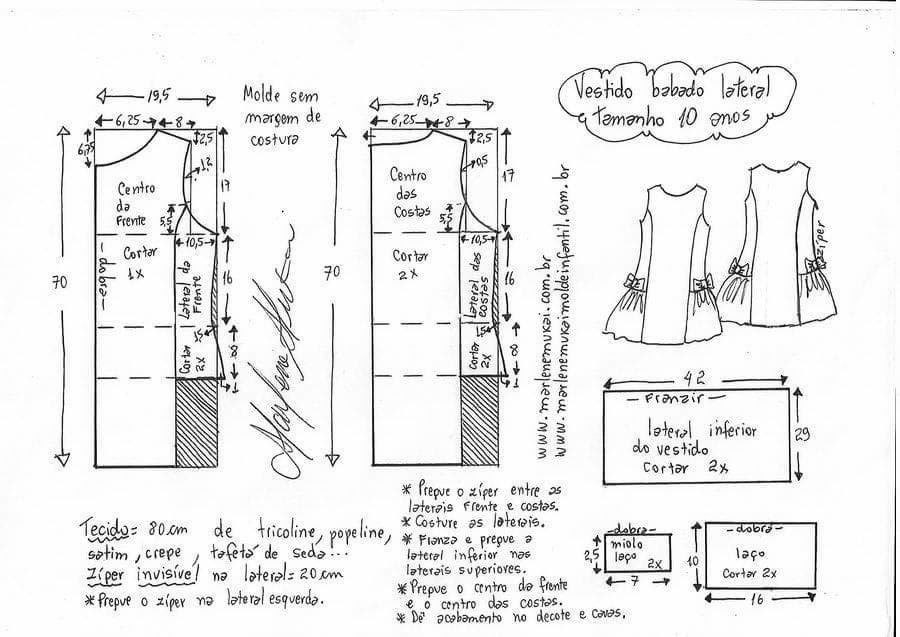 Vestido babado lateral
tamanho 10 anos
Molde sem
margem de
costura
19,5
6,25
8
2,5
6,75
1,2
17
Centro
da
Frente
5,5
10,5
Cortar
1x
dobra
Lateral da
Frente
16
70
1,5
8
Cortar
2x
1
19,5
6,25
8
2,5
0,5
17
Centro
das
Costas
5,5
10,5
Cortar
2x
Lateral das
costas
16
70
1,5
8
Cortar
2x
1
www.marlenemukai.com.br
www.marlenemukaimoldeinfantil.com.br
zíper
42
Franzir
lateral inferior
do vestido
cortar 2x
29
dobra
miolo
laço
2x
2,5
7
dobra
laço
Cortar 2x
10
16
Tecido= 80cm de tricoline, popeline,
satim, crepe, tafetá de seda...
Zíper invisível na lateral= 20cm
* Prepue o zíper na lateral esquerda.
* Prepue o zíper entre as
laterais frente e costas.
* Costure as laterais.
* Franza e prepue a
lateral inferior nas
laterais superiores.
* Prepue o centro da frente
e o centro das costas.
* Dê acabamento no decote e cavas.